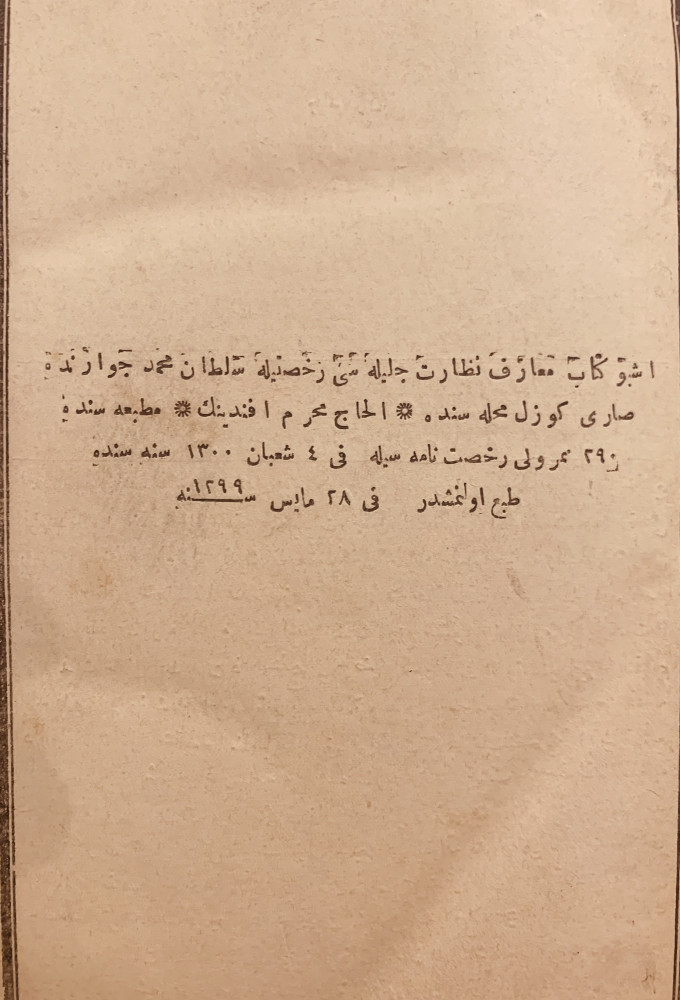 اشبو كتاب معارف نظارت جليله سى رخصتيله سلطان محمد جوارنده
صارى كوزل محله سنده ❋ الحاج محرم افندينك ❋ مطبعه سنده
٢٩٠ نمرولى رخصت نامه سيله فى ٤ شعبان ١٣٠٠ سنه سنده
طبع اولنمشدر فى ٢٨ مايس سنه ١٢٩٩